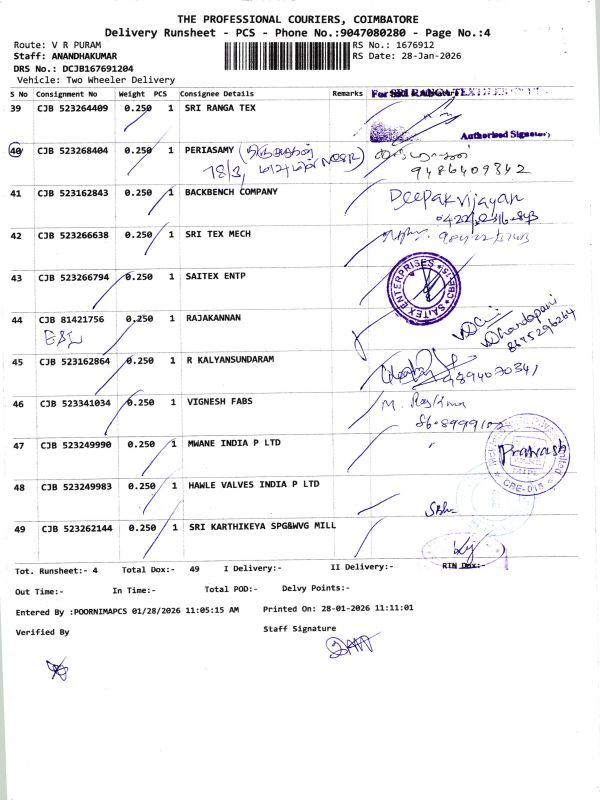 THE PROFESSIONAL COURIERS, COIMBATORE
Delivery Runsheet - PCS - Phone No.:9047080280 - Page No.:4
Route: V R PURAM
RS No.: 1676912
Staff: ANANDHAKUMAR
RS Date: 28-Jan-2026
DRS No.: DCJB167691204
Vehicle: Two Wheeler Delivery
S No Consignment No Weight PCS Consignee Details Remarks For SRI RANGA TEXTILES
39 CJB 523264409 0.250 1 SRI RANGA TEX
Authorised Signatory
40 CJB 523268404 0.250 1 PERIASAMY
78/3,
9486409342
41 CJB 523162843 0.250 1 BACKBENCH COMPANY Deepak vijayan
42 CJB 523266638 0.250 1 SRI TEX MECH
43 CJB 523266794 0.250 1 SAITEX ENTP
SAITEX ENTERPRISES * CBE-15 *
44 CJB 81421756 0.250 1 RAJAKANNAN
8695296264
45 CJB 523162864 0.250 1 R KALYANSUNDARAM
46 CJB 523341034 0.250 1 VIGNESH FABS
47 CJB 523249990 0.250 1 MWANE INDIA P LTD
Prakash
CBE-015
48 CJB 523249983 0.250 1 HAWLE VALVES INDIA P LTD
49 CJB 523262144 0.250 1 SRI KARTHIKEYA SPG&WVG MILL
Tot. Runsheet:- 4 Total Dox:- 49 I Delivery:- II Delivery:- RTN Dox:-
Out Time:- In Time:- Total POD:- Delvy Points:-
Entered By :POORNIMAPCS 01/28/2026 11:05:15 AM Printed On: 28-01-2026 11:11:01
Verified By Staff Signature